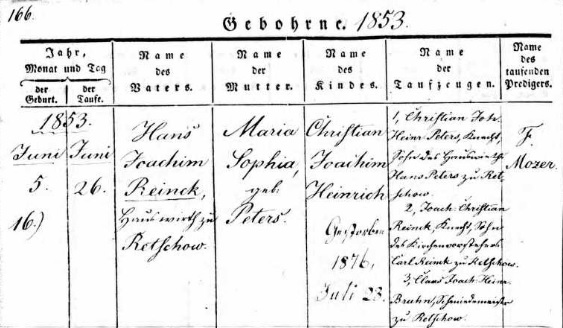 166.
Gebohrne. 1853.
Jahr,
Monat und Tag
der
Geburt.
der
Taufe.
Name
des
Vaters.
Name
der
Mutter.
Name
des
Kindes.
Name
der
Taufzeugen.
Name
des
taufenden
Predigers.
1853.
Juni
5.
16.)
Juni
26.
Hans
Joachim
Reinck,
Hauswirth zu
Retschow.
Maria
Sophia,
geb.
Peters.
Christian
Joachim
Heinrich
Gestorben
1876,
Juli 28.
1, Christian Joh.
Heinr Peters, Knecht,
Sohn des Hauswirths
Hans Peters zu Ret-
schow.
2, Joach. Christian
Reinck, Knecht, Sohn
des Kirchenvorstehers
Carl Reinck zu Retschow.
3, Claas Joach Heinr.
Bruhn, Schmiedemeister
zu Retschow.
F.
Mozer.